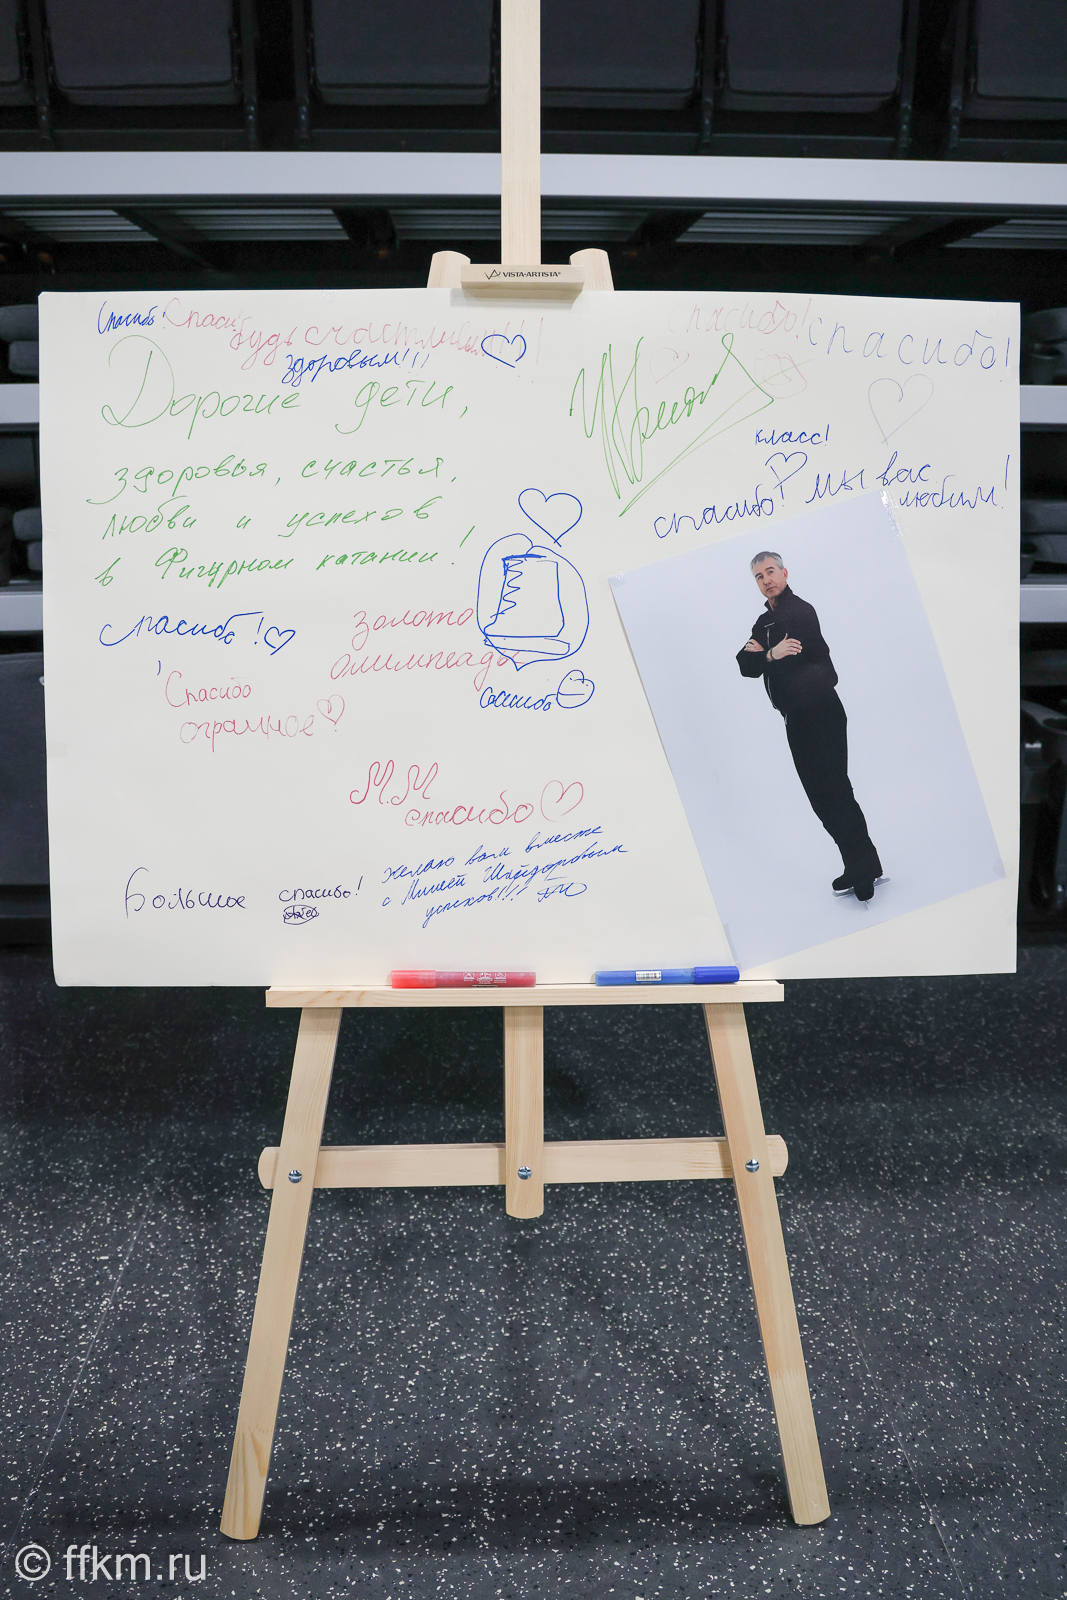 VISTA-ARTISTA®
Спасибо! Спаси
будь счастливым!!!
здоровым!!!
спасибо! спасибо!
Дорогие дети,
здоровья, счастья,
любви и успехов
в Фигурном катании!
класс!
спасибо! мы вас
любим!
спасибо!
золото
олимпеады
Спасибо
огромное
спасибо
М.М
спасибо
Желаю вам вместе
с Мишей Шайдоровым
успехов!!!
Большое спасибо!
© ffkm.ru